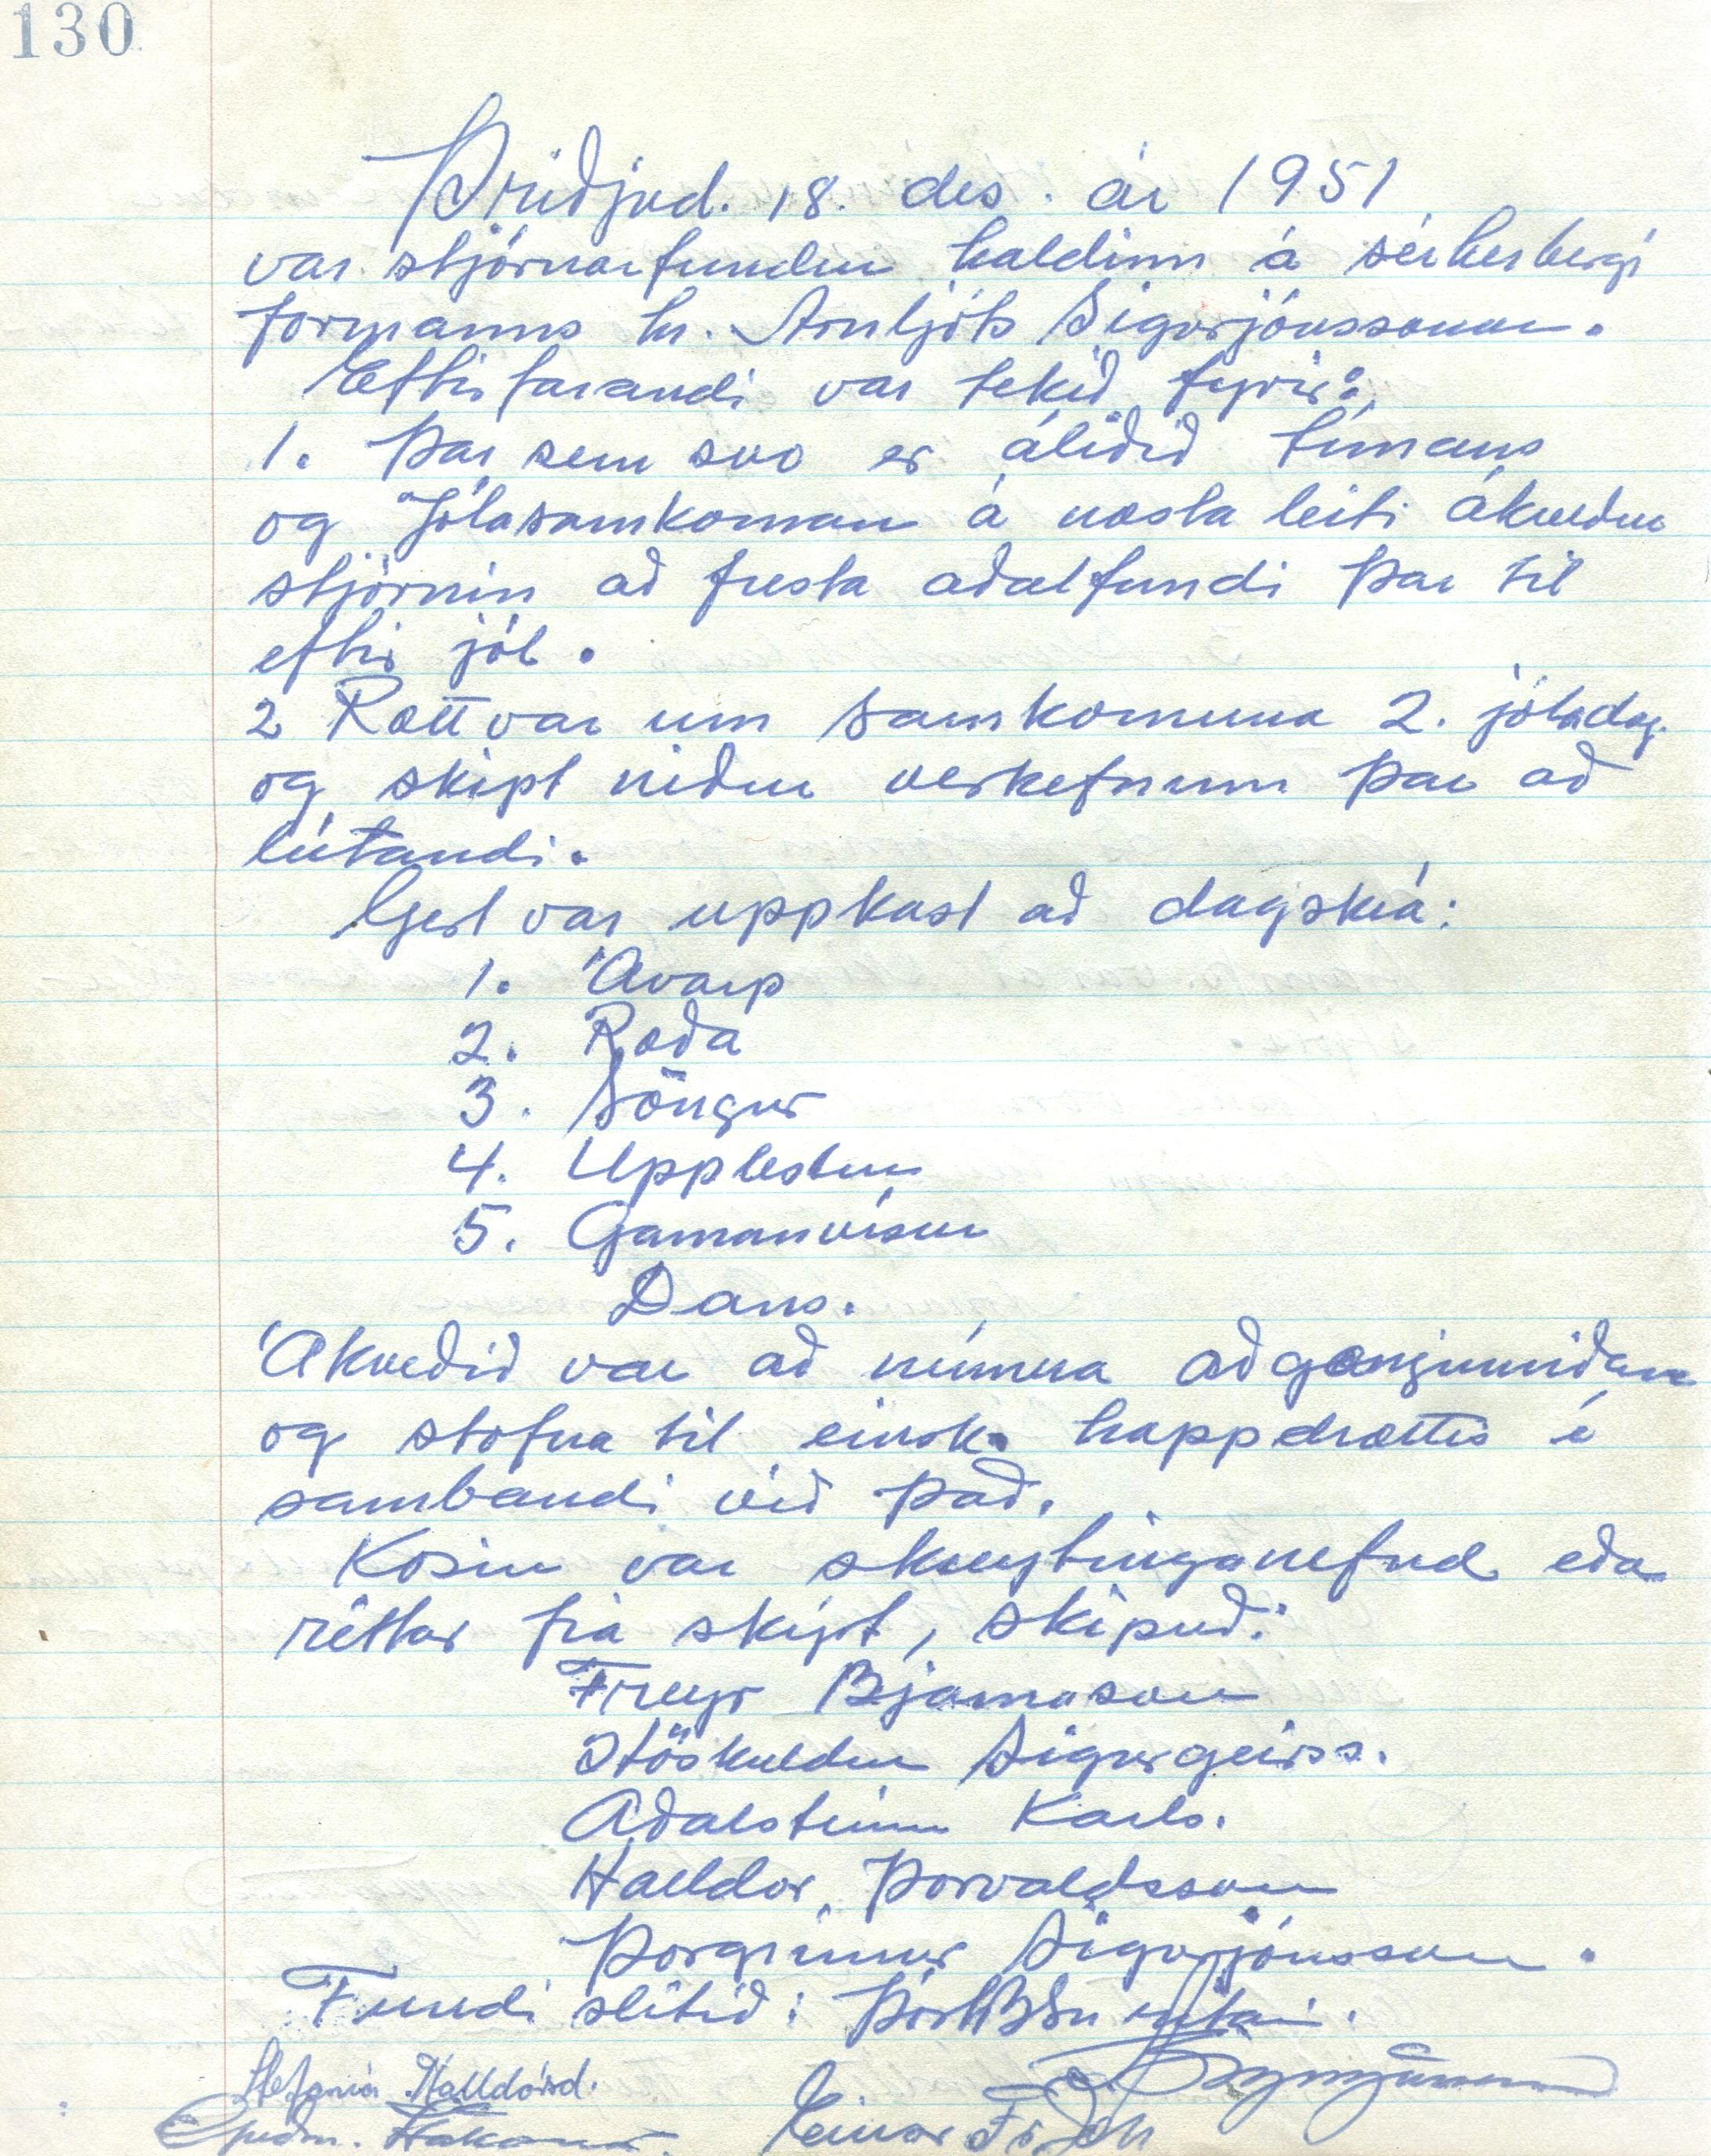 130
Þriðjud. 18. des. ár 1951
var stjórnarfundur haldinn á sérherbergi
formanns hr. Arnljóts Sigurjónssonar.
Eftirfarandi var tekið fyrir:
1. Þar sem svo er áliðið tímans
og Jólasamkoman á næsta leiti ákveður
stjórnin að fresta aðalfundi þar til
eftir jól.
2 Rætt var um samkomuna 2. jóladag.
og skipt niður verkefnum þar að
lútandi.
Gert var uppkast að dagskrá:
1. Ávarp
2. Ræða
3. Söngur
4. Upplestur
5. Gamanvísur
Dans.
Ákveðið var að númra aðgöngumiðana
og stofna til einsk. happdrættis í
sambandi við það.
Kosin var skreytinganefnd eða
réttar frá skýrt, skipuð:
Freyr Bjarnason
Höskuldur Sigurgeirss.
Aðalsteinn Karls.
Halldór Þorvaldsson
Þorgrímur Sigurjónsson.
Fundi slitið: ritari.
Stefanía Halldórsd.
Einar Fr.